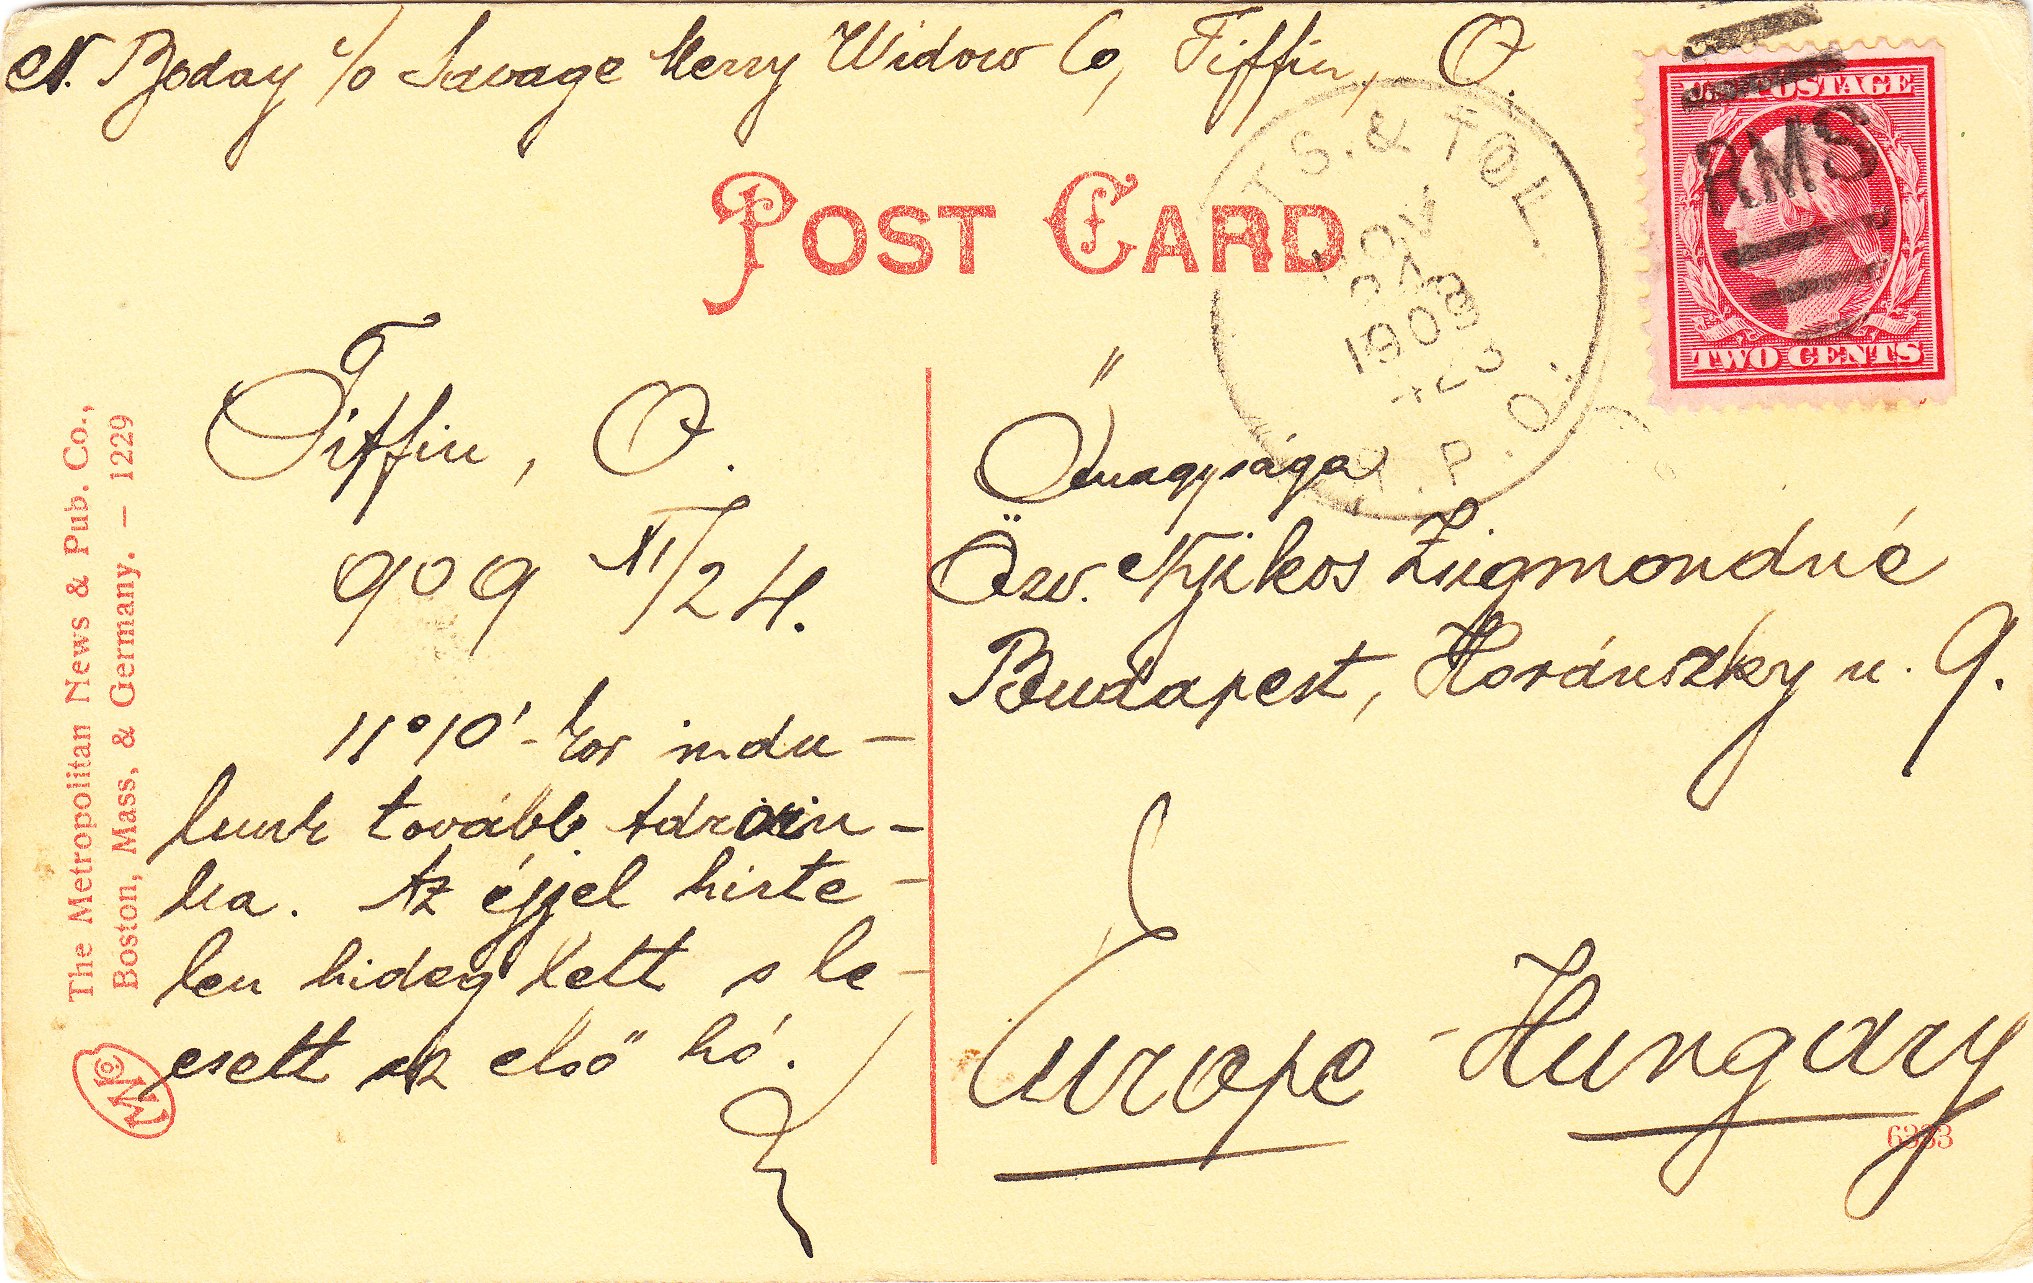 N. Boday c/o Savage Merry Widow Co, Tiffin, O.
POST CARD
U.S. POSTAGE
TWO CENTS
RMS
TS. & TOL.
NOV
24
1909
R.P.O.
The Metropolitan News & Pub. Co.,
Boston, Mass, & Germany. — 1229
Tiffin, O.
909 XI/24.
11°10'-kor indu-
lunk tovább Adrian-
ba. Az éjjel hirte-
len hideg lett s le-
esett az első hó.
Őnagysága
Özv. Nyikos Zsigmondné
Budapest, Horánszky u. 9.
Europe - Hungary
MNCo
6333